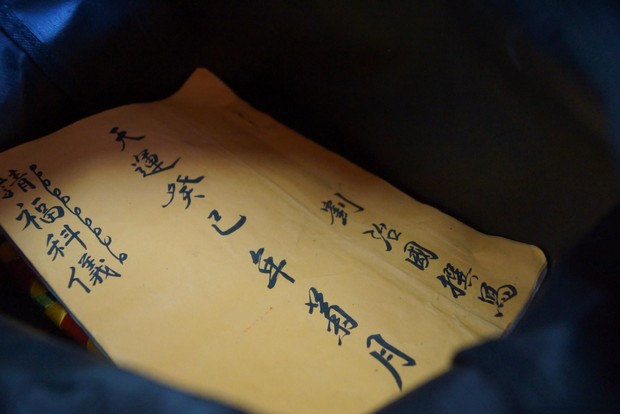 劉治國寫
天運癸巳年菊月
請福科儀